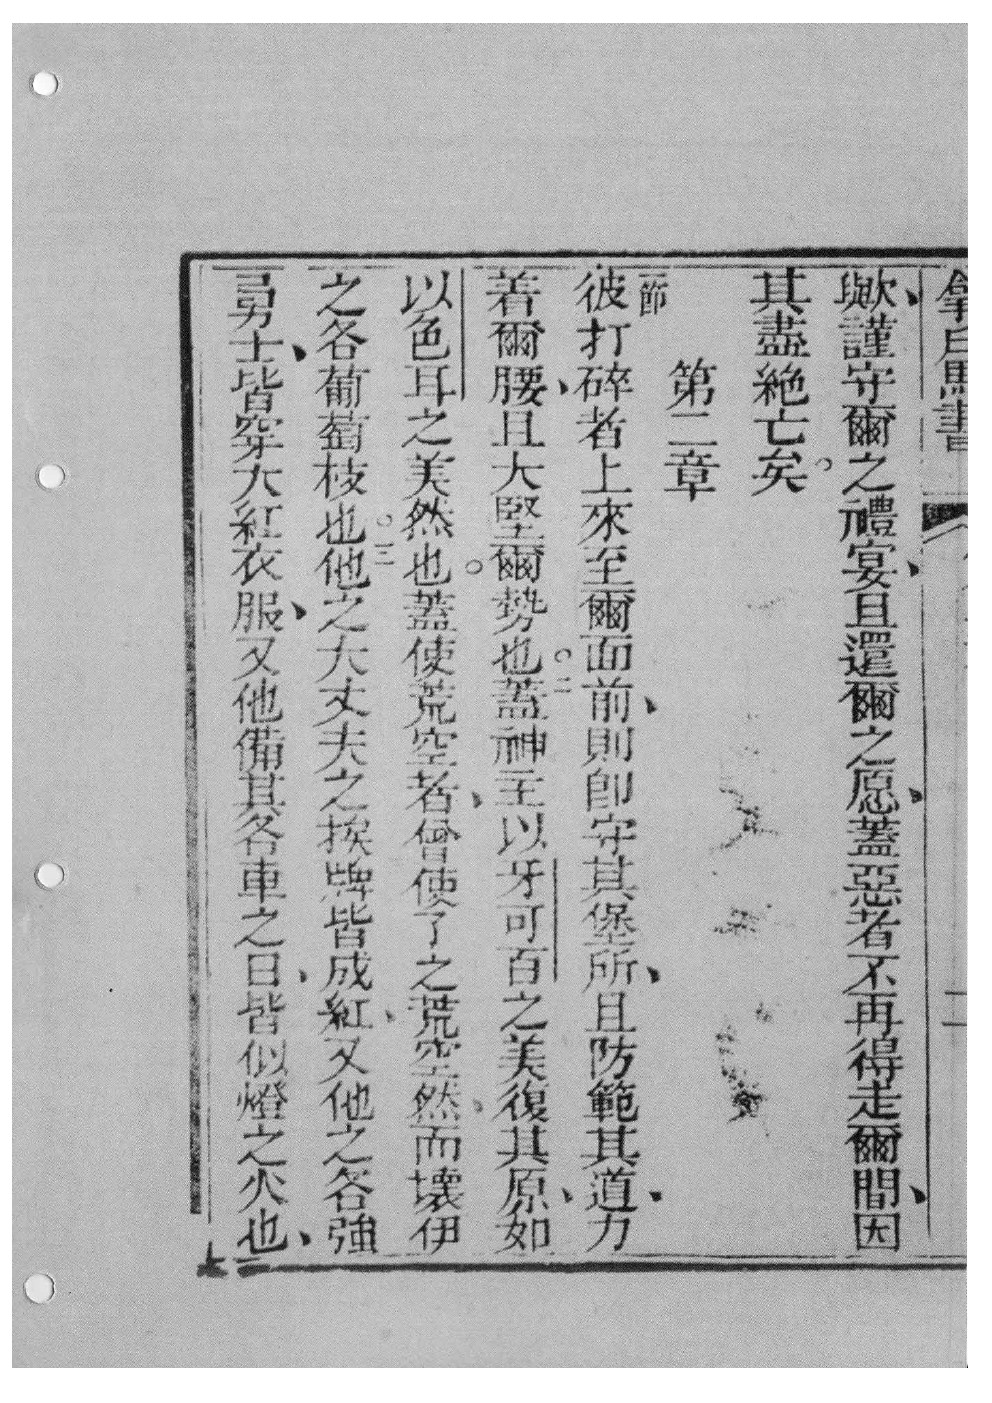 拿戶馬書
歟、與謹守爾之禮宴、且還爾之愿、蓋惡者不再得走爾間、因
其盡絕亡矣。
第二章
一節彼打碎者上來至爾面前、則卽守其堡所、且防範其道、力
着爾腰、且大堅爾勢也。二蓋神主以牙可百之美復其原、如
以色耳之美然也。蓋使荒空者、曾使了之荒空然、而壞伊
之各葡萄枝也。三他之大丈夫之挨牌皆成紅、又他之各強
勇士、皆穿大紅衣服、又他備其各車之日、皆似燈之火也、